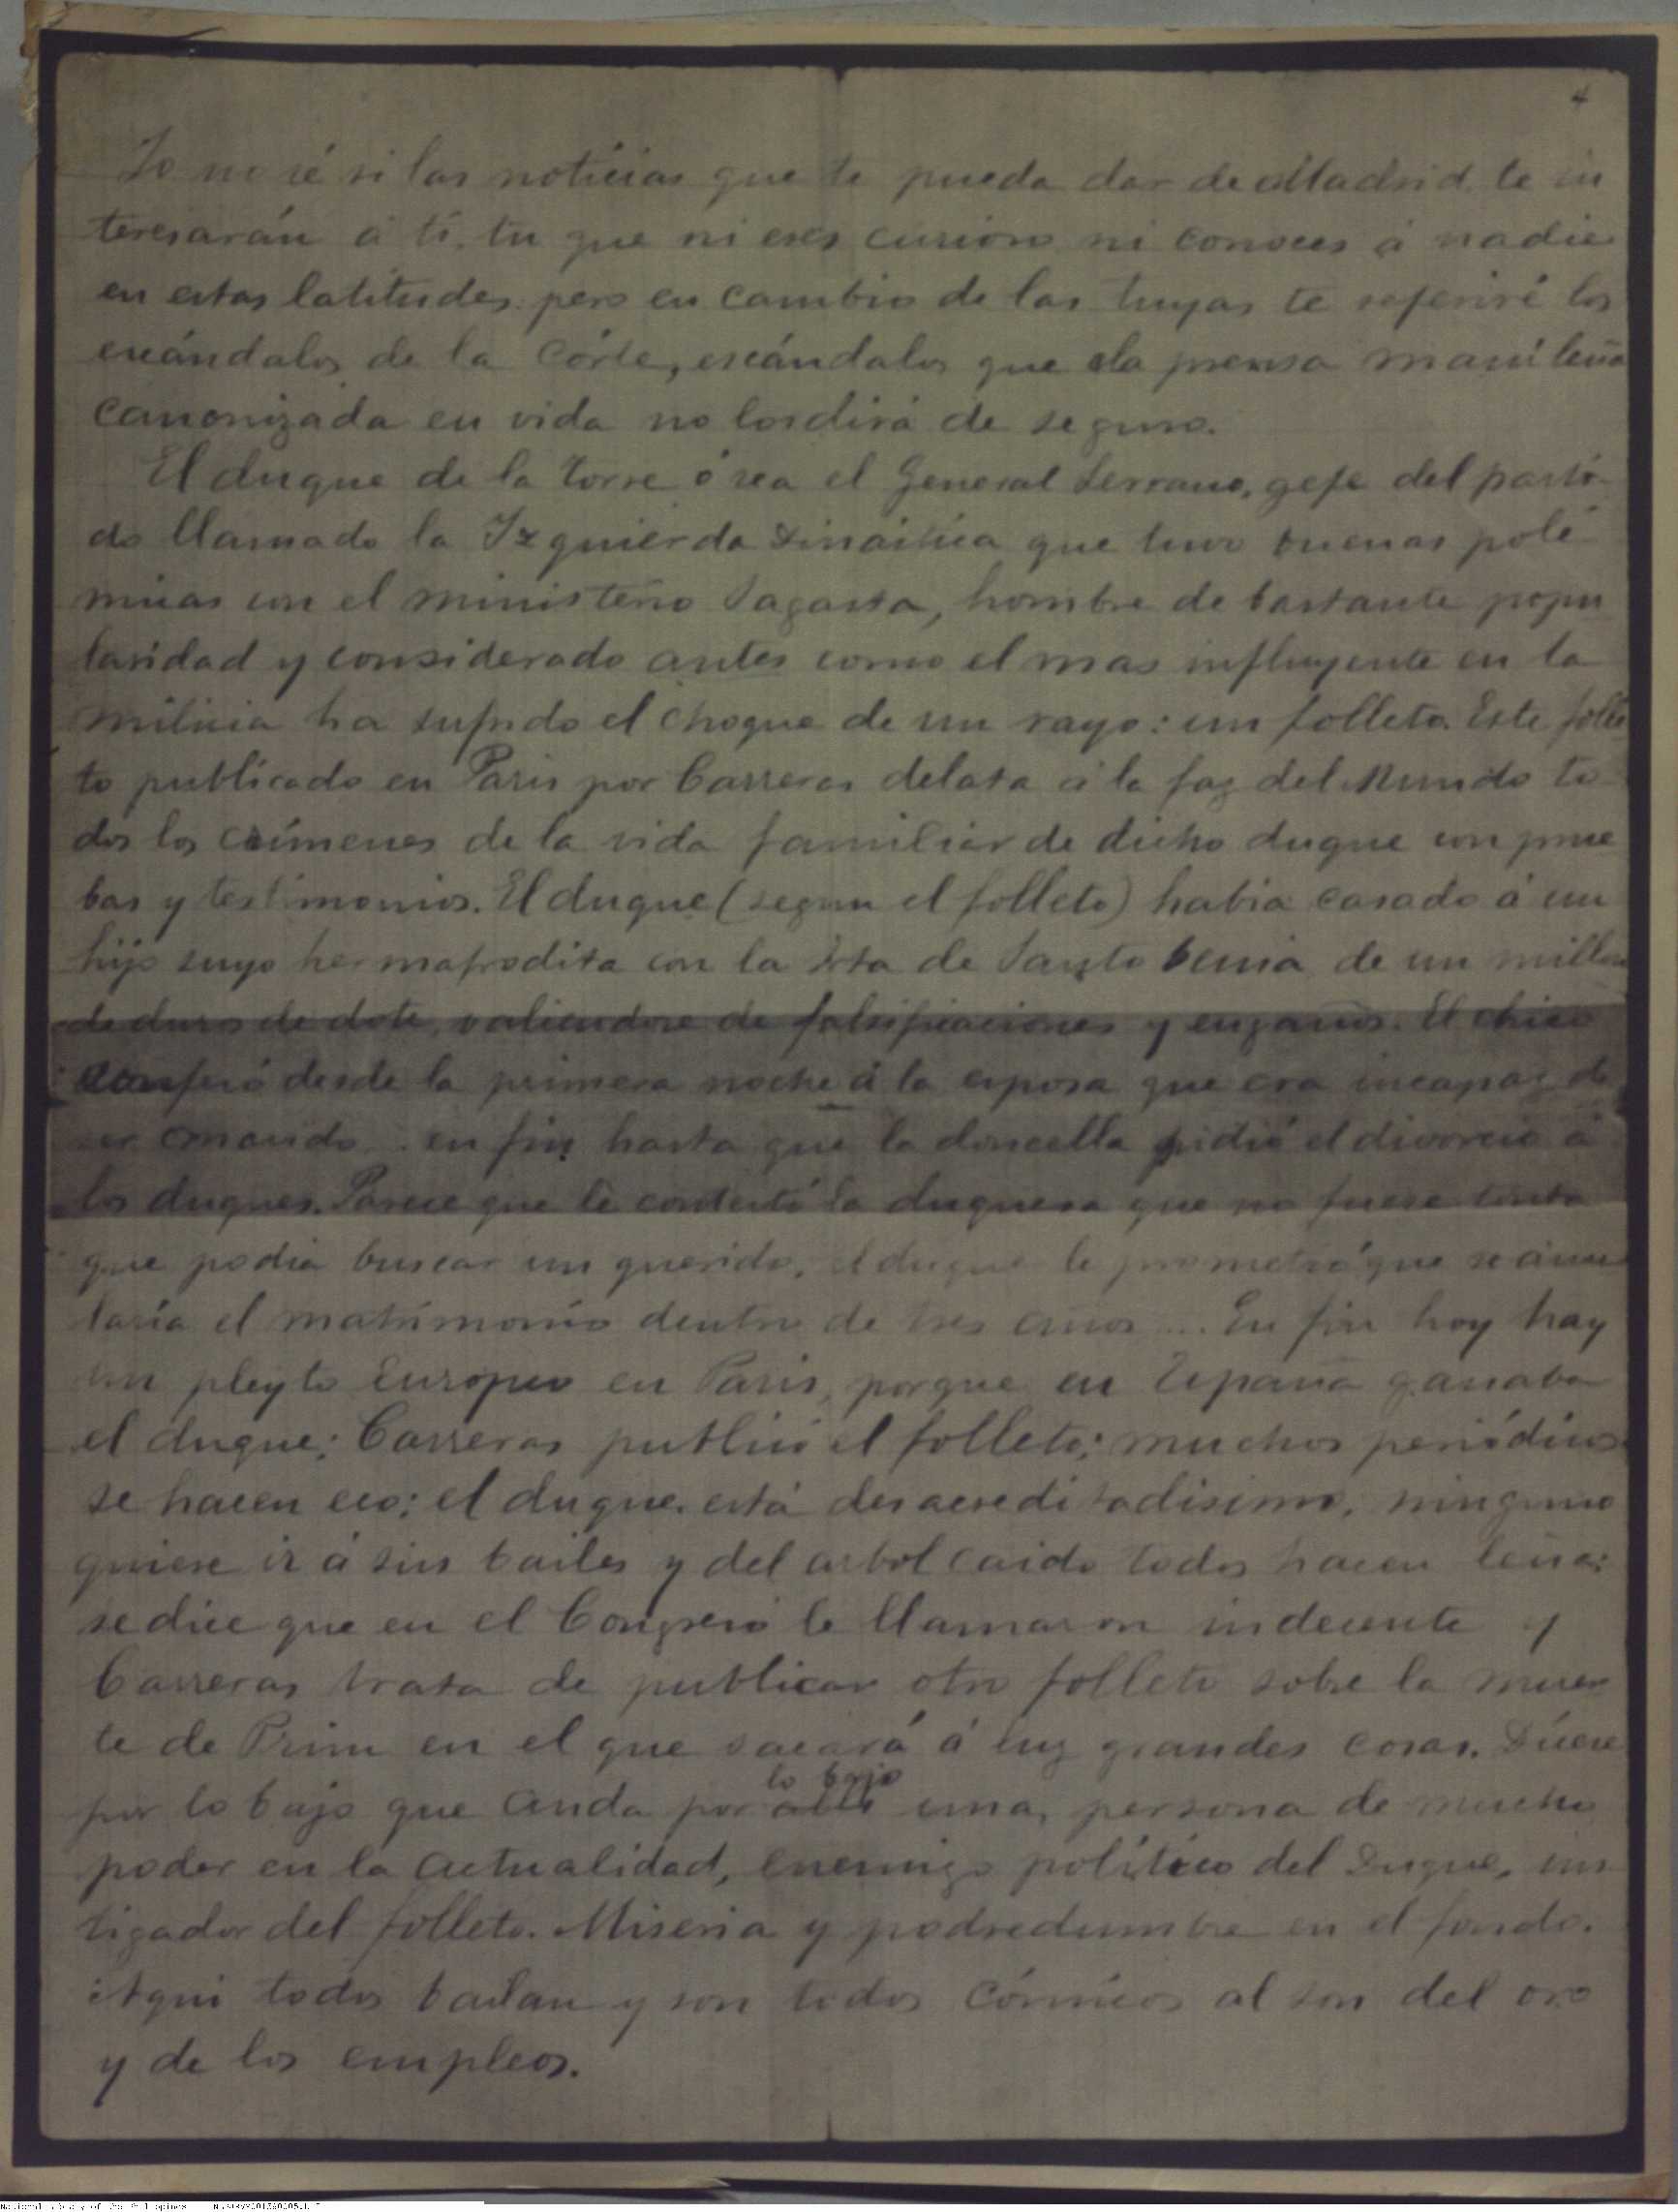 4
Yo no sé si las noticias que te pueda dar de Madrid te in
teresarán á tí, tu que ni eres curioso ni conoces á nadie
en estas latitudes: pero en cambio de las tuyas te referiré los
escándalos de la Córte, escándalos que la prensa manileña
canonizada en vida no los dirá de seguro.
El duque de la Torre ó sea el General Serrano, gefe del parti-
do llamado la Izquierda Dinástica que tuvo buenas polé-
micas con el ministerio Sagasta, hombre de bastante popu
laridad y considerado antes como el mas influyente en la
milicia ha sufrido el choque de un rayo: un folleto. Este folle
to publicado en Paris por Carreras delata á la faz del Mundo to
dos los crímenes de la vida familiar de dicho duque con prue
bas y testimonios. El duque (segun el folleto) habia casado á un
hijo suyo hermafrodita con la Srta de Santo Venia de un millon
de duros de dote, valiendose de falsificaciones y engaños. El chico
confesó desde la primera noche á la esposa que era incapaz de
ser marido... en fin hasta que la doncella pidió el divorcio á
los duques. Parece que le contestó la duquesa que no fuese tonta
que podia buscar un querido, el duque le prometió que se anu
laría el matrimonio dentro de tres años... En fin hoy hay
un pleyto Europeo en Paris, porque en España ganaba
el duque; Carreras publicó el folleto; muchos periódicos
se hacen eco; el duque está desacreditadisimo, ninguno
quiere ir á sus bailes y del arbol caido todos hacen leña:
se dice que en el Congreso le llamaron indecente y
Carreras trata de publicar otro folleto sobre la muer
te de Prim en el que sacará á luz grandes cosas. Dícese
lo bajo
por lo bajo que anda por allí una persona de mucho
poder en la actualidad, enemigo político del Duque, ins
tigador del folleto. Miseria y podredumbre en el fondo.
¡Aqui todos bailan y son todos cómicos al son del oro
y de los empleos.
National Library of the Philippines